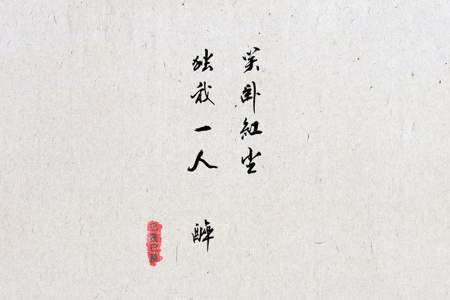 笑卧紅尘
独我一人 醉